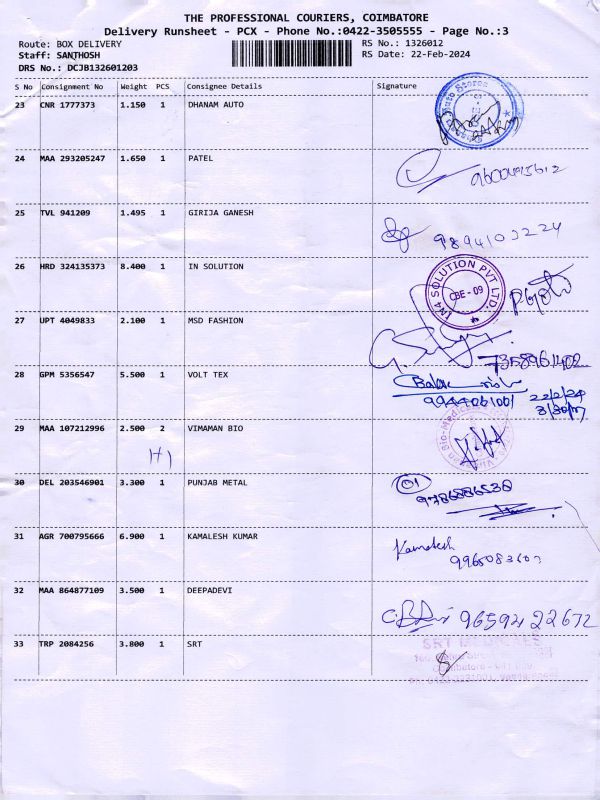 THE PROFESSIONAL COURIERS, COIMBATORE
Delivery Runsheet - PCX - Phone No.:0422-3505555 - Page No.:3
Route: BOX DELIVERY
RS No.: 1326012
Staff: SANTHOSH
RS Date: 22-Feb-2024
DRS No.: DCJB132601203
S No Consignment No Weight PCS Consignee Details Signature
23 CNR 1777373 1.150 1 DHANAM AUTO
Auto Stores
24 MAA 293205247 1.650 1 PATEL
25 TVL 941209 1.495 1 GIRIJA GANESH
9894103224
26 HRD 324135373 8.400 1 IN SOLUTION
IN4 SOLUTION PVT LTD.
CBE - 09
27 UPT 4049833 2.100 1 MSD FASHION
7358961402
28 GPM 5356547 5.500 1 VOLT TEX
9944061001 22/2/24
29 MAA 107212996 2.500 2 VIMAMAN BIO
30 DEL 203546901 3.300 1 PUNJAB METAL
01
9786886530
31 AGR 700795666 6.900 1 KAMALESH KUMAR
Kamalesh
32 MAA 864877109 3.500 1 DEEPADEVI
9659422672
33 TRP 2084256 3.800 1 SRT
SRT MEDICALS